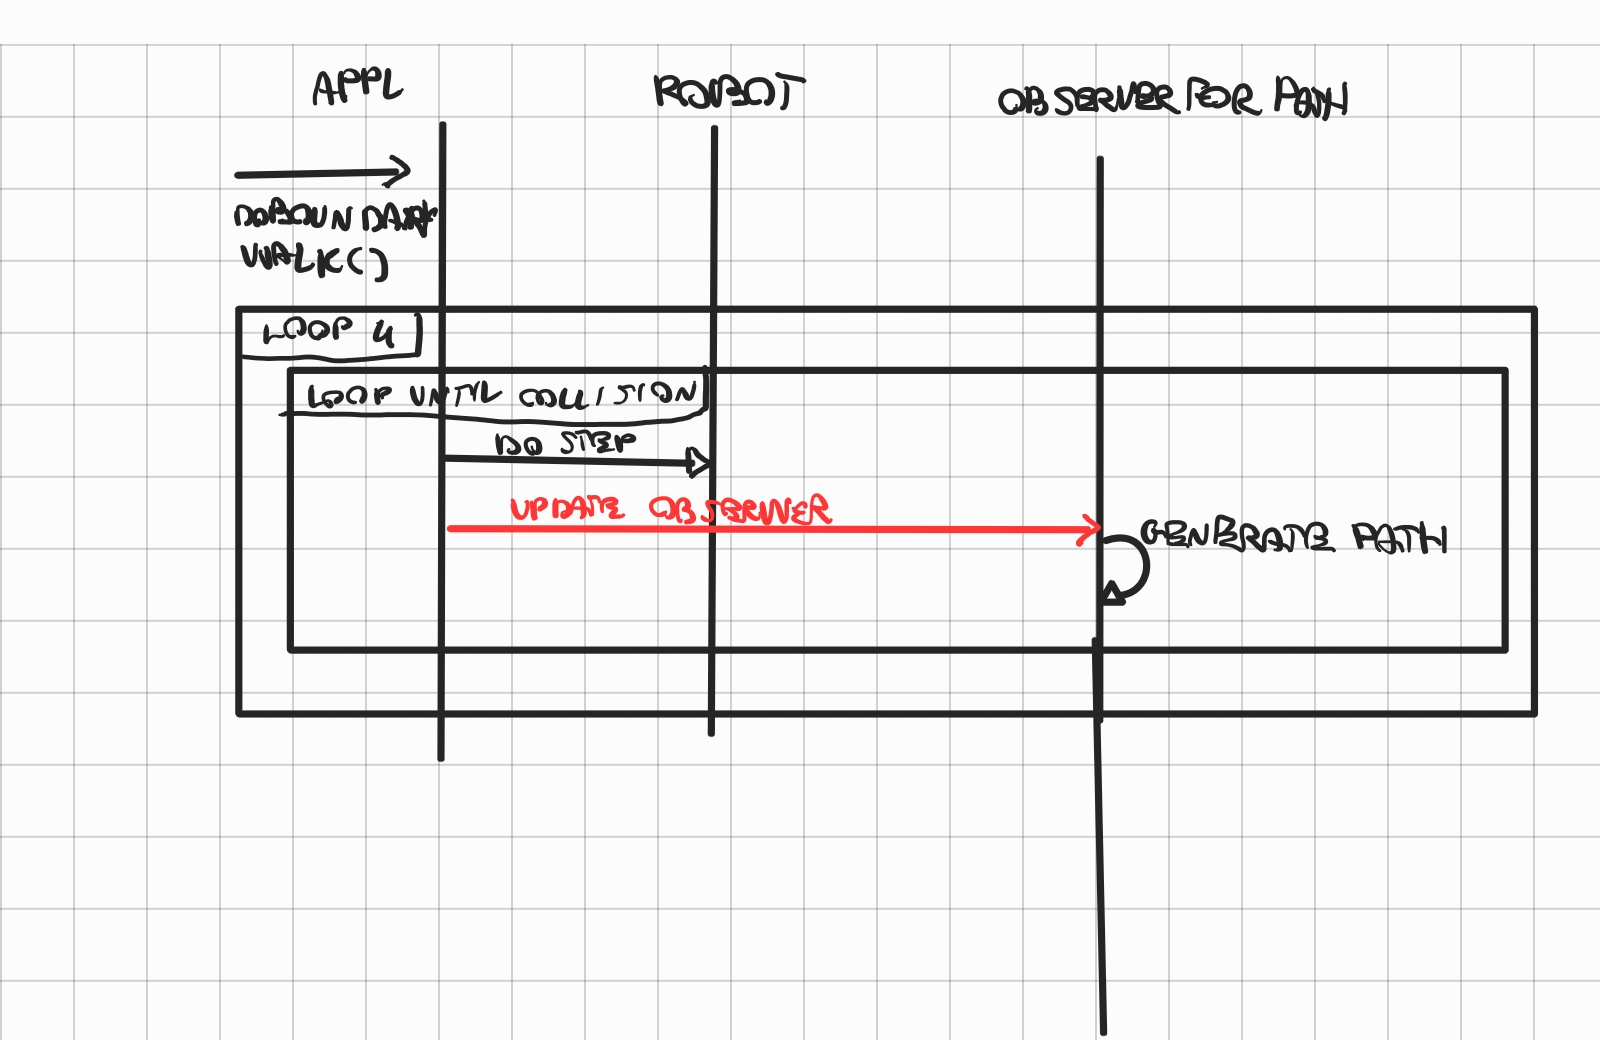 APPL
ROBOT
OBSERVER FOR PATH
DOBOUNDARY
WALK()
LOOP 4
LOOP UNTIL COLLISION
DO STEP
UPDATE OBSERVER
GENERATE PATH